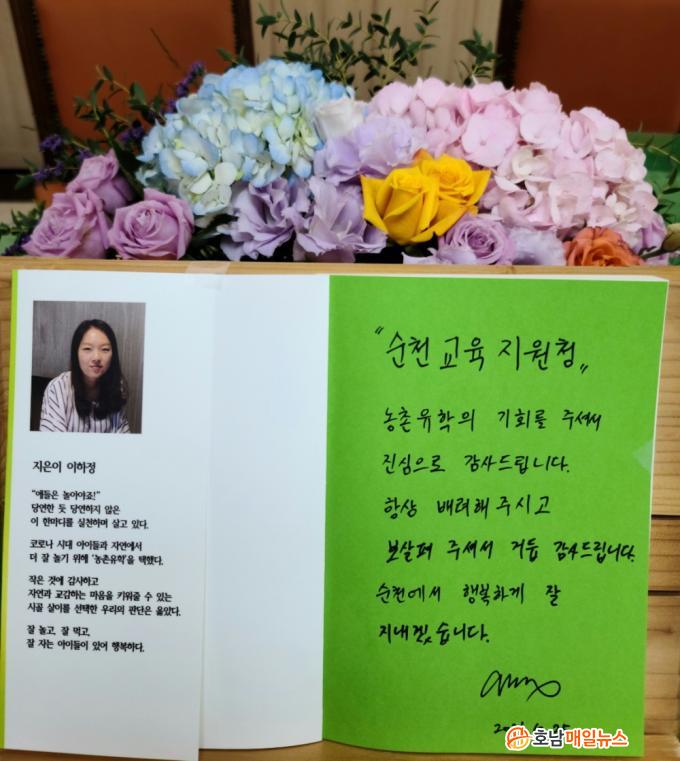 지은이 이하정
"애들은 놀아야죠!"
당연한 듯 당연하지 않은
이 한마디를 실천하며 살고 있다.
코로나 시대 아이들과 자연에서
더 잘 놀기 위해 '농촌유학'을 택했다.
작은 것에 감사하고
자연과 교감하는 마음을 키워줄 수 있는
시골 살이를 선택한 우리의 판단은 옳았다.
잘 놀고, 잘 먹고,
잘 자는 아이들이 있어 행복하다.
"순천 교육 지원청"
농촌유학의 기회를 주셔서
진심으로 감사드립니다.
항상 배려해 주시고
보살펴 주셔서 거듭 감사드립니다.
순천에서 행복하게 잘
지내겠습니다.
호남매일뉴스